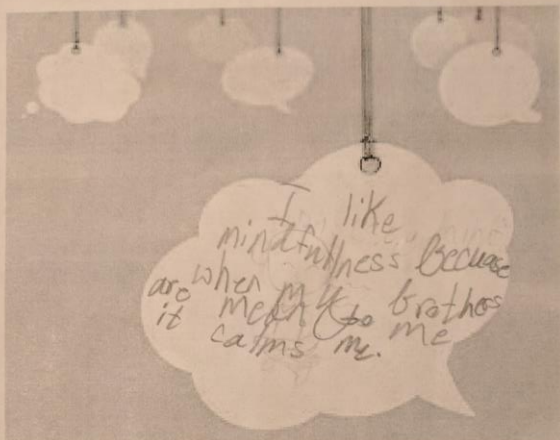 I like
mindfullness Becuase
when my brothers
are mean to me
it calms me.